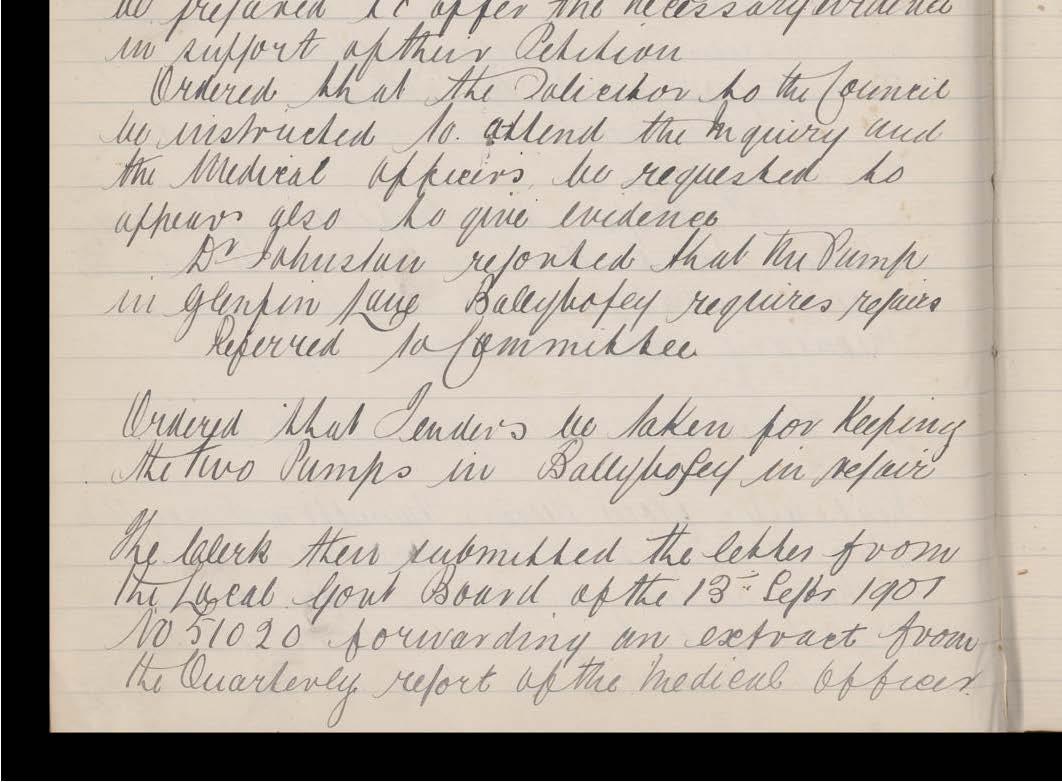 be prepared to offer the necessary evidence
in support of their Petition
Ordered that the Solicitor to the Council
be instructed to attend the Inquiry and
the Medical officers be requested to
appear also to give evidence
Dr Johnston reported that the Pump
in Glenfin Lane Ballybofey requires repairs
Referred to Committee
Ordered that Tenders be taken for Keeping
the two Pumps in Ballybofey in repair
The Clerk then submitted the letter from
the Local Govt Board of the 13th Septr 1901
No 51020 forwarding an extract from
the Quarterly report of the Medical Officer